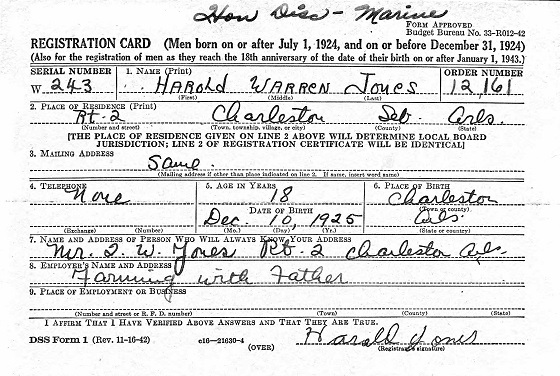 Hon Disc - Marine
Form Approved
Budget Bureau No. 33-R012-42
REGISTRATION CARD (Men born on or after July 1, 1924, and on or before December 31, 1924)
(Also for the registration of men as they reach the 18th anniversary of the date of their birth on or after January 1, 1943.)
SERIAL NUMBER 1. NAME (Print) ORDER NUMBER
W 243 HAROLD WARREN Jones 12,161
(First) (Middle) (Last)
2. PLACE OF RESIDENCE (Print)
Rt-2 Charleston Seb. Ark.
(Number and street) (Town, township, village, or city) (County) (State)
[THE PLACE OF RESIDENCE GIVEN ON LINE 2 ABOVE WILL DETERMINE LOCAL BOARD
JURISDICTION; LINE 2 OF REGISTRATION CERTIFICATE WILL BE IDENTICAL]
3. MAILING ADDRESS
Same
(Mailing address if other than place indicated on line 2. If same, insert word same)
4. TELEPHONE 5. AGE IN YEARS 6. PLACE OF BIRTH
None 18 Charleston
DATE OF BIRTH (Town or county)
Dec. 10, 1925 Ark.
(Exchange) (Number) (Mo.) (Day) (Yr.) (State or country)
7. NAME AND ADDRESS OF PERSON WHO WILL ALWAYS KNOW YOUR ADDRESS
Mr. W. Jones Rt-2 Charleston Ark.
8. EMPLOYER'S NAME AND ADDRESS
Farming with Father
9. PLACE OF EMPLOYMENT OR BUSINESS
(Number and street or R. F. D. number) (Town) (County) (State)
I AFFIRM THAT I HAVE VERIFIED ABOVE ANSWERS AND THAT THEY ARE TRUE.
DSS Form 1 (Rev. 11-16-42) c16-21630-4 Harold Jones
(OVER) (Registrant's signature)